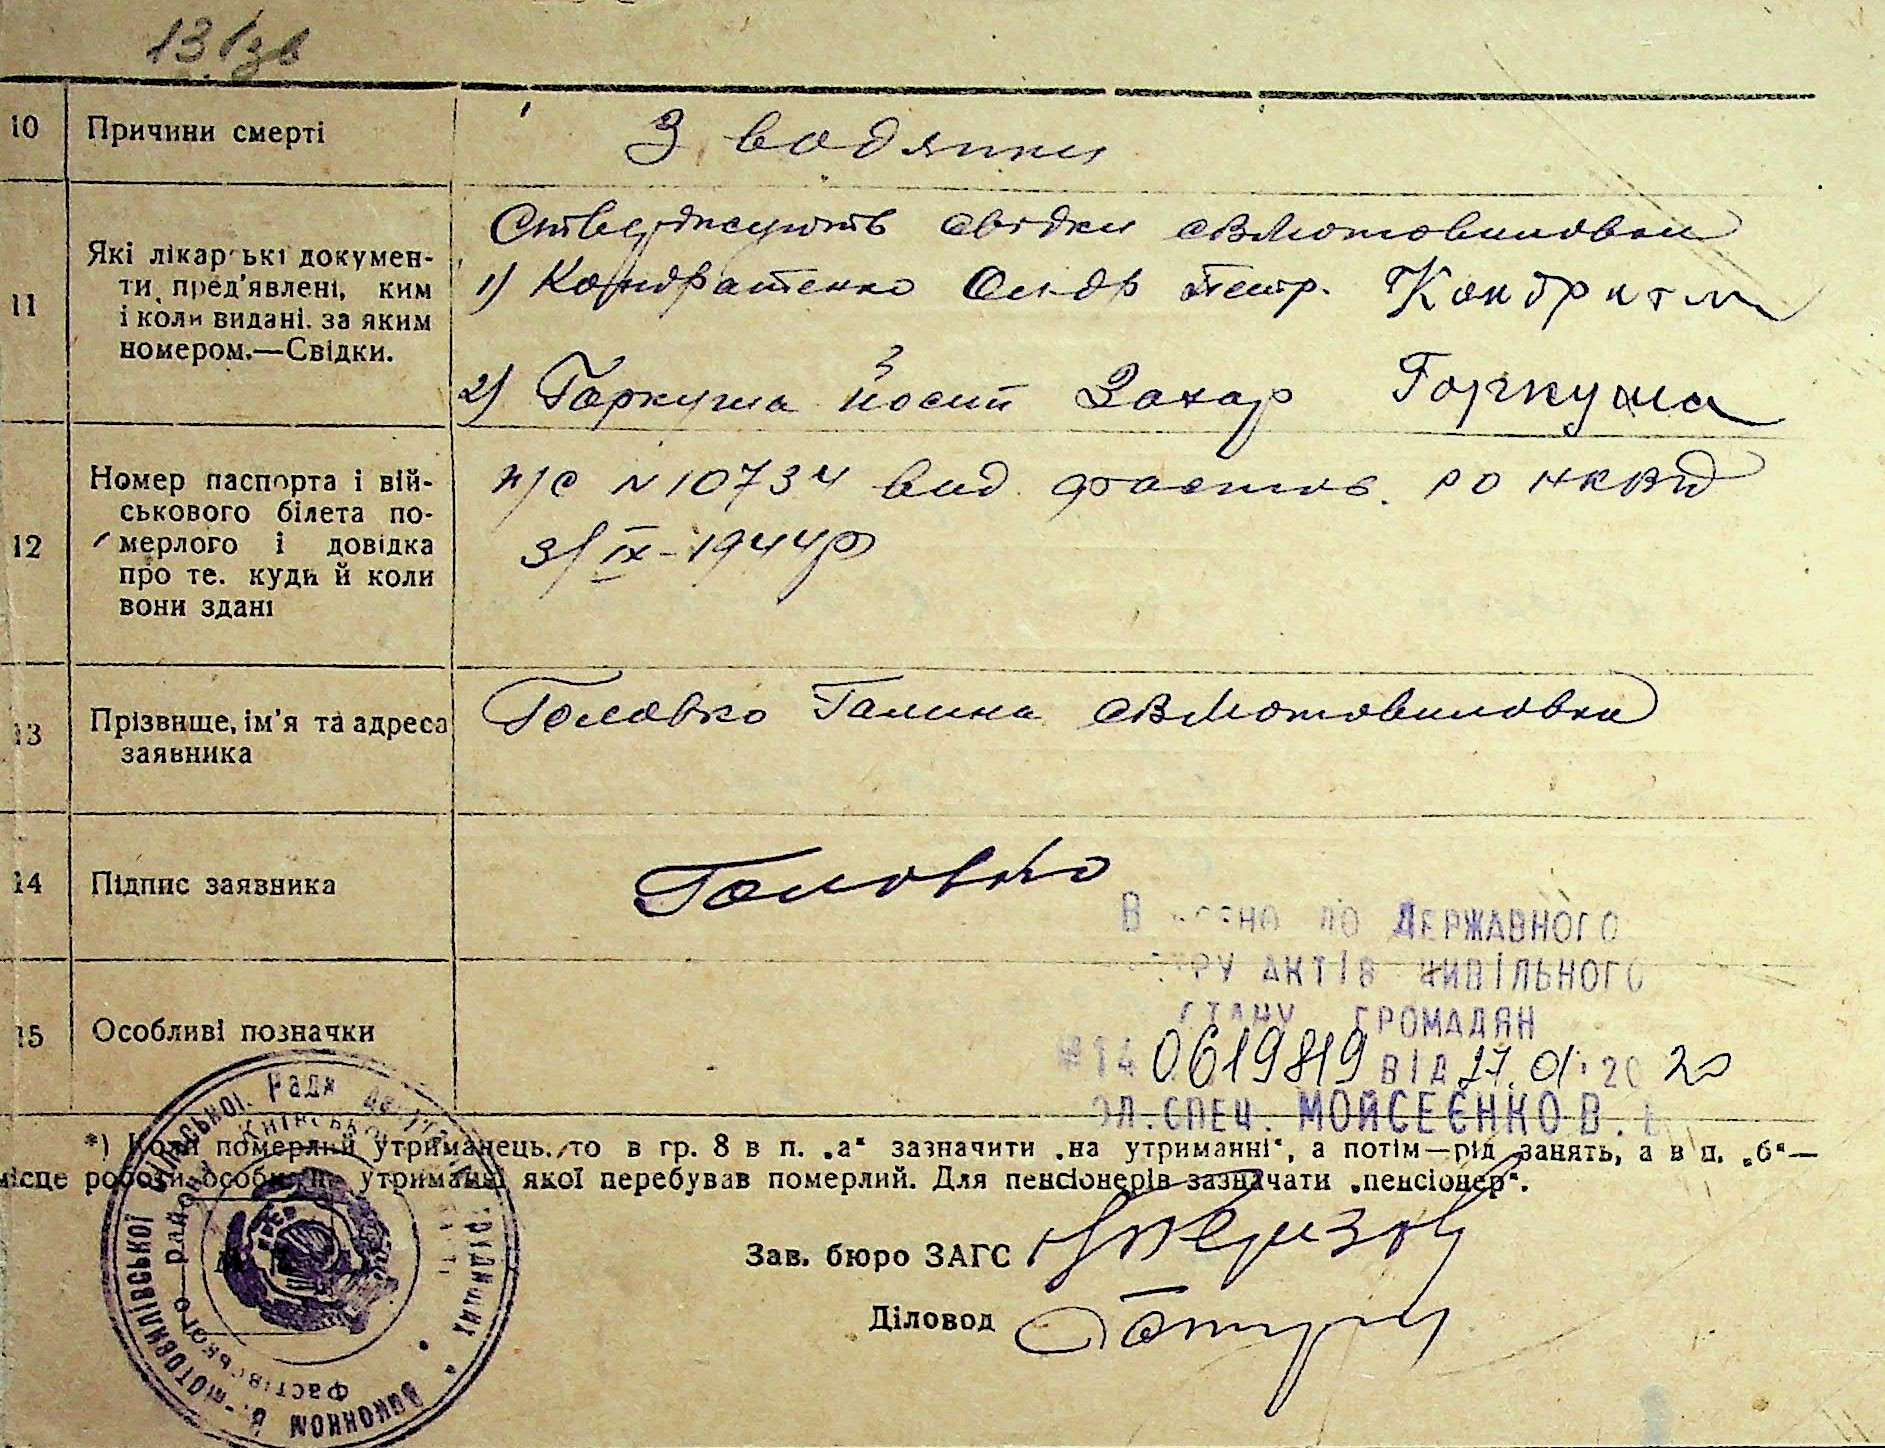 131зв
10 Причини смерті
З водянки
11 Які лікарські докумен-
ти пред'явлені, ким
і коли видані. за яким
номером.—Свідки.
Стверджують свідки с. В Мотовиловки
1) Кондратенко Петр. Кондрат
2) Гаркуша Йосип Захар Горкуша
12 Номер паспорта і вій-
ськового білета по-
мерлого і довідка
про те. куди й коли
вони здані
п/с N 10734 вид. Фастов. РО НКВД
3/IX-1944р
13 Прізвище, ім'я та адреса
заявника
Головко Галина с. В Мотовиловка
14 Підпис заявника
Головко
ДО ДЕРЖАВНОГО
АКТІВ ЦИВІЛЬНОГО
СТАНУ ГРОМАДЯН
#14 0619819 ВІД 27.01.2020
ГОЛ.СПЕЦ. МОЙСЕЄНКО В.
15 Особливі позначки
*) Коли померлий утриманець. то в гр. 8 в п. „а“ зазначити „на утриманні“, а потім—рід занять, а в п. „б“—
місце роботи особи, на утриманні якої перебував померлий. Для пенсіонерів зазначати „пенсіонер“.
Зав. бюро ЗАГС
Діловод
Виконком В.-Мотовилівської сільської Ради депутатів трудящих
Фастівського району Київської